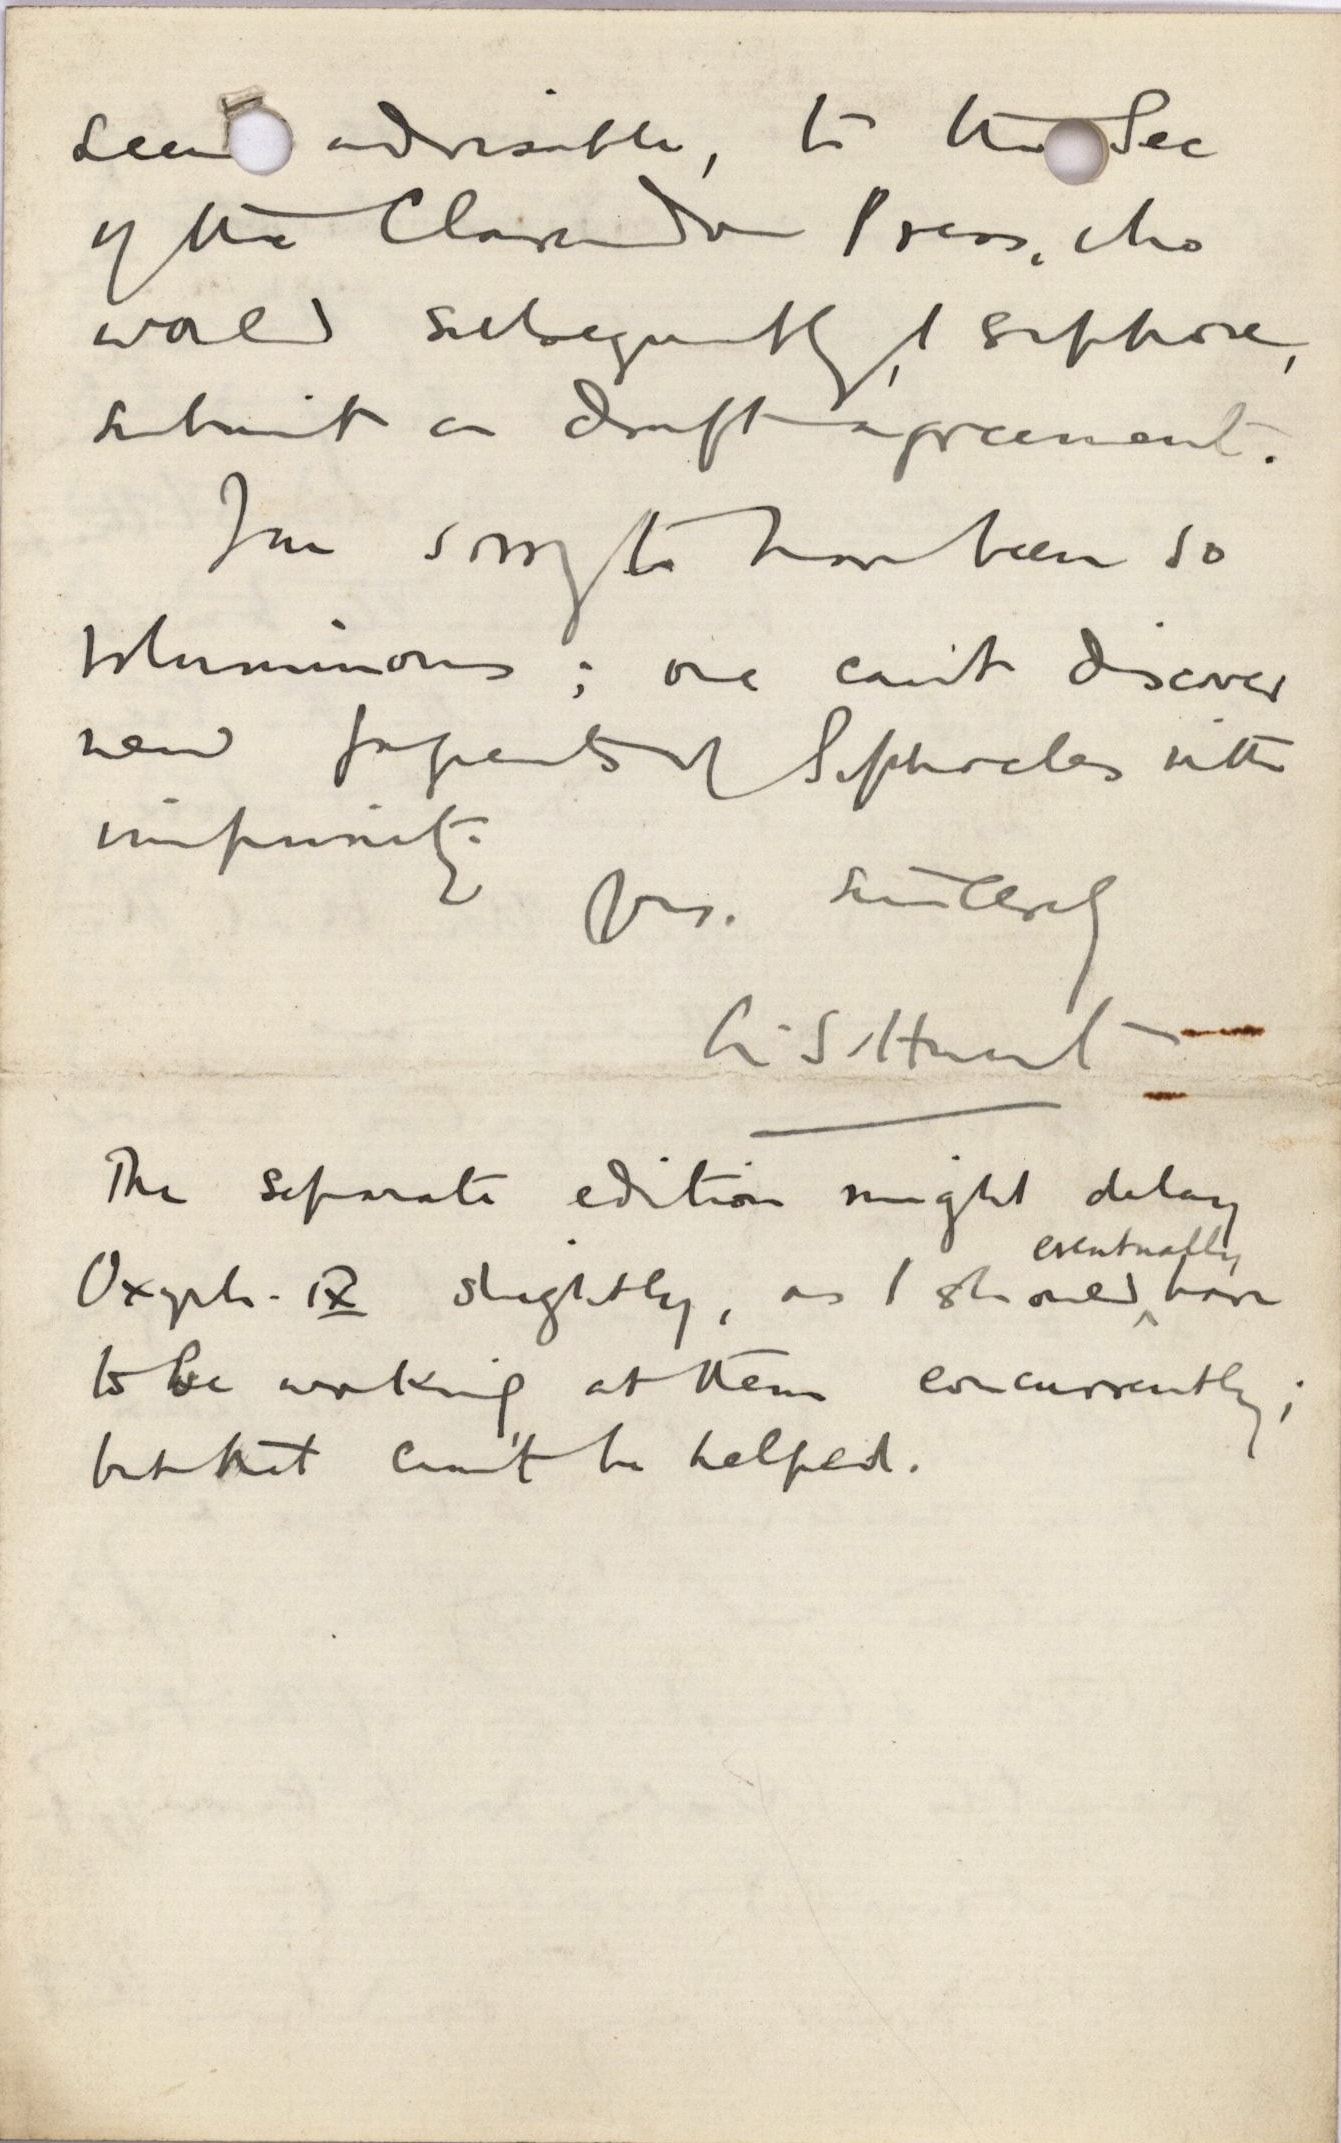 seem advisable, to the Sec
of the Clarendon Press, who
would subsequently, I suppose,
submit a draft agreement.
I am sorry to have been so
voluminous; one can't discover
new fragments of Sophocles with
impunity.
Yrs. sincerely
A. S. Hunt
The separate edition might delay
Oxyrh. IX slightly, as I should ^ eventually have
to be working at them concurrently;
but that can't be helped.